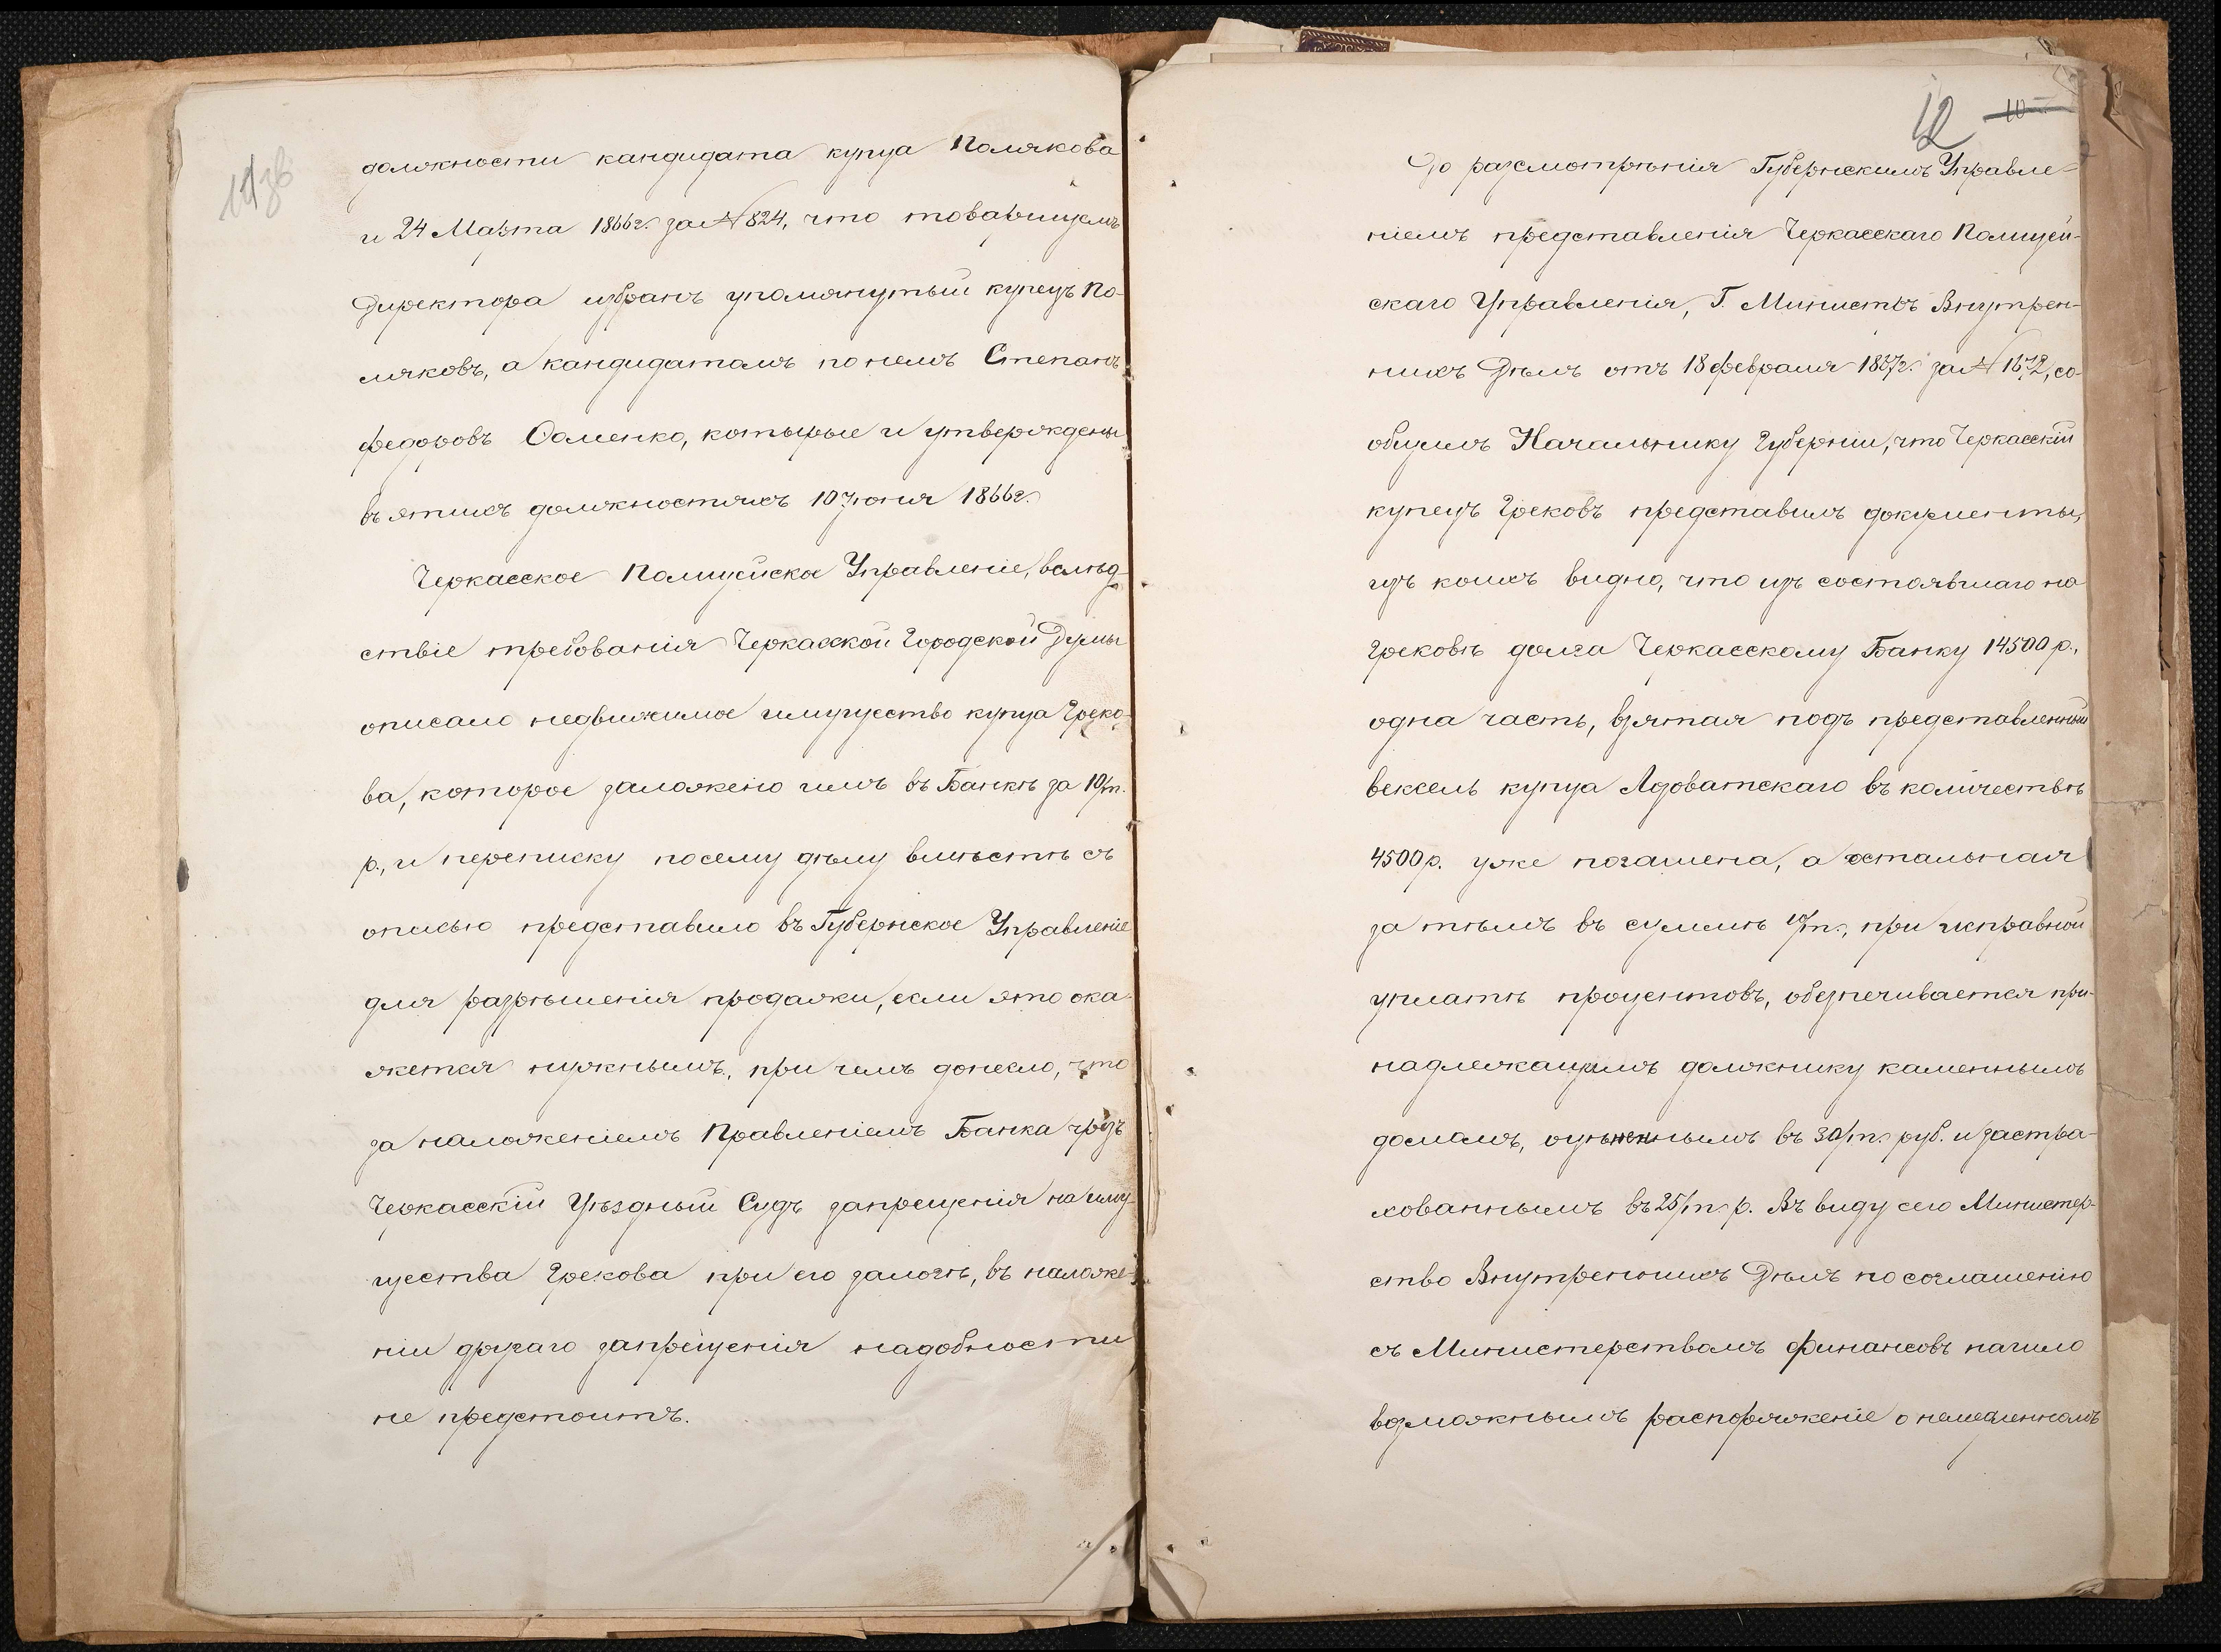 11 зв
должности кандидата купца Полякова
и 24 Марта 1866г. за № 824, что товарищемъ
Директора избранъ упомянутый купецъ По-
ляковъ, а кандидатомъ по немъ Степанъ
Федоровъ Соменко, которые и утверждены
въ этихъ должностяхъ 10 Іюня 1866г.
Черкасское Полицейское Управленіе, вслѣд-
ствіе требованія Черкасской Городской Думы
описало недвижимое имущество купца Греко-
ва, которое заложено имъ въ Банкѣ за 10/т.
р., и переписку по сему дѣлу вмѣстѣ съ
описью представило въ Губернское Управленіе
для разрѣшенія продажи, если это ока-
жется нужнымъ, при чемъ донесло, что
за наложеніемъ Правленіемъ Банка чрезъ
Черкасскій Уѣздный Судъ запрещенія на иму-
щества Грекова при его залогѣ, въ наложе-
ніи другаго запрещенія надобности
не предстоитъ.
12 10
До разсмотрѣнія Губернскимъ Управле-
ніемъ представленія Черкасскаго Полицей-
скаго Управленія, Г. Министръ Внутрен-
нихъ Дѣлъ отъ 18 февраля 1867г. за № 1672, со-
общилъ Начальнику Губерніи, что Черкасскій
купецъ Грековъ представилъ документы,
изъ коихъ видно, что изъ состоявшаго на
Грековѣ долга Черкасскому Банку 14500 р.,
одна часть, взятая подъ представленный
вексель купца Лдоватскаго въ количествѣ
4500 р. уже погашена, а остальная
за тѣмъ въ суммѣ 10/т., при исправной
уплатѣ процентовъ, обезпечивается при-
надлежащимъ должнику каменнымъ
домомъ, оцѣненнымъ въ 30/т. руб. и застра-
хованнымъ въ 25/т. р. Въ виду сего Министер-
ство Внутреннихъ Дѣлъ по соглашенію
съ Министерствомъ Финансовъ нашло
возможнымъ распоряженіе о немедленномъ